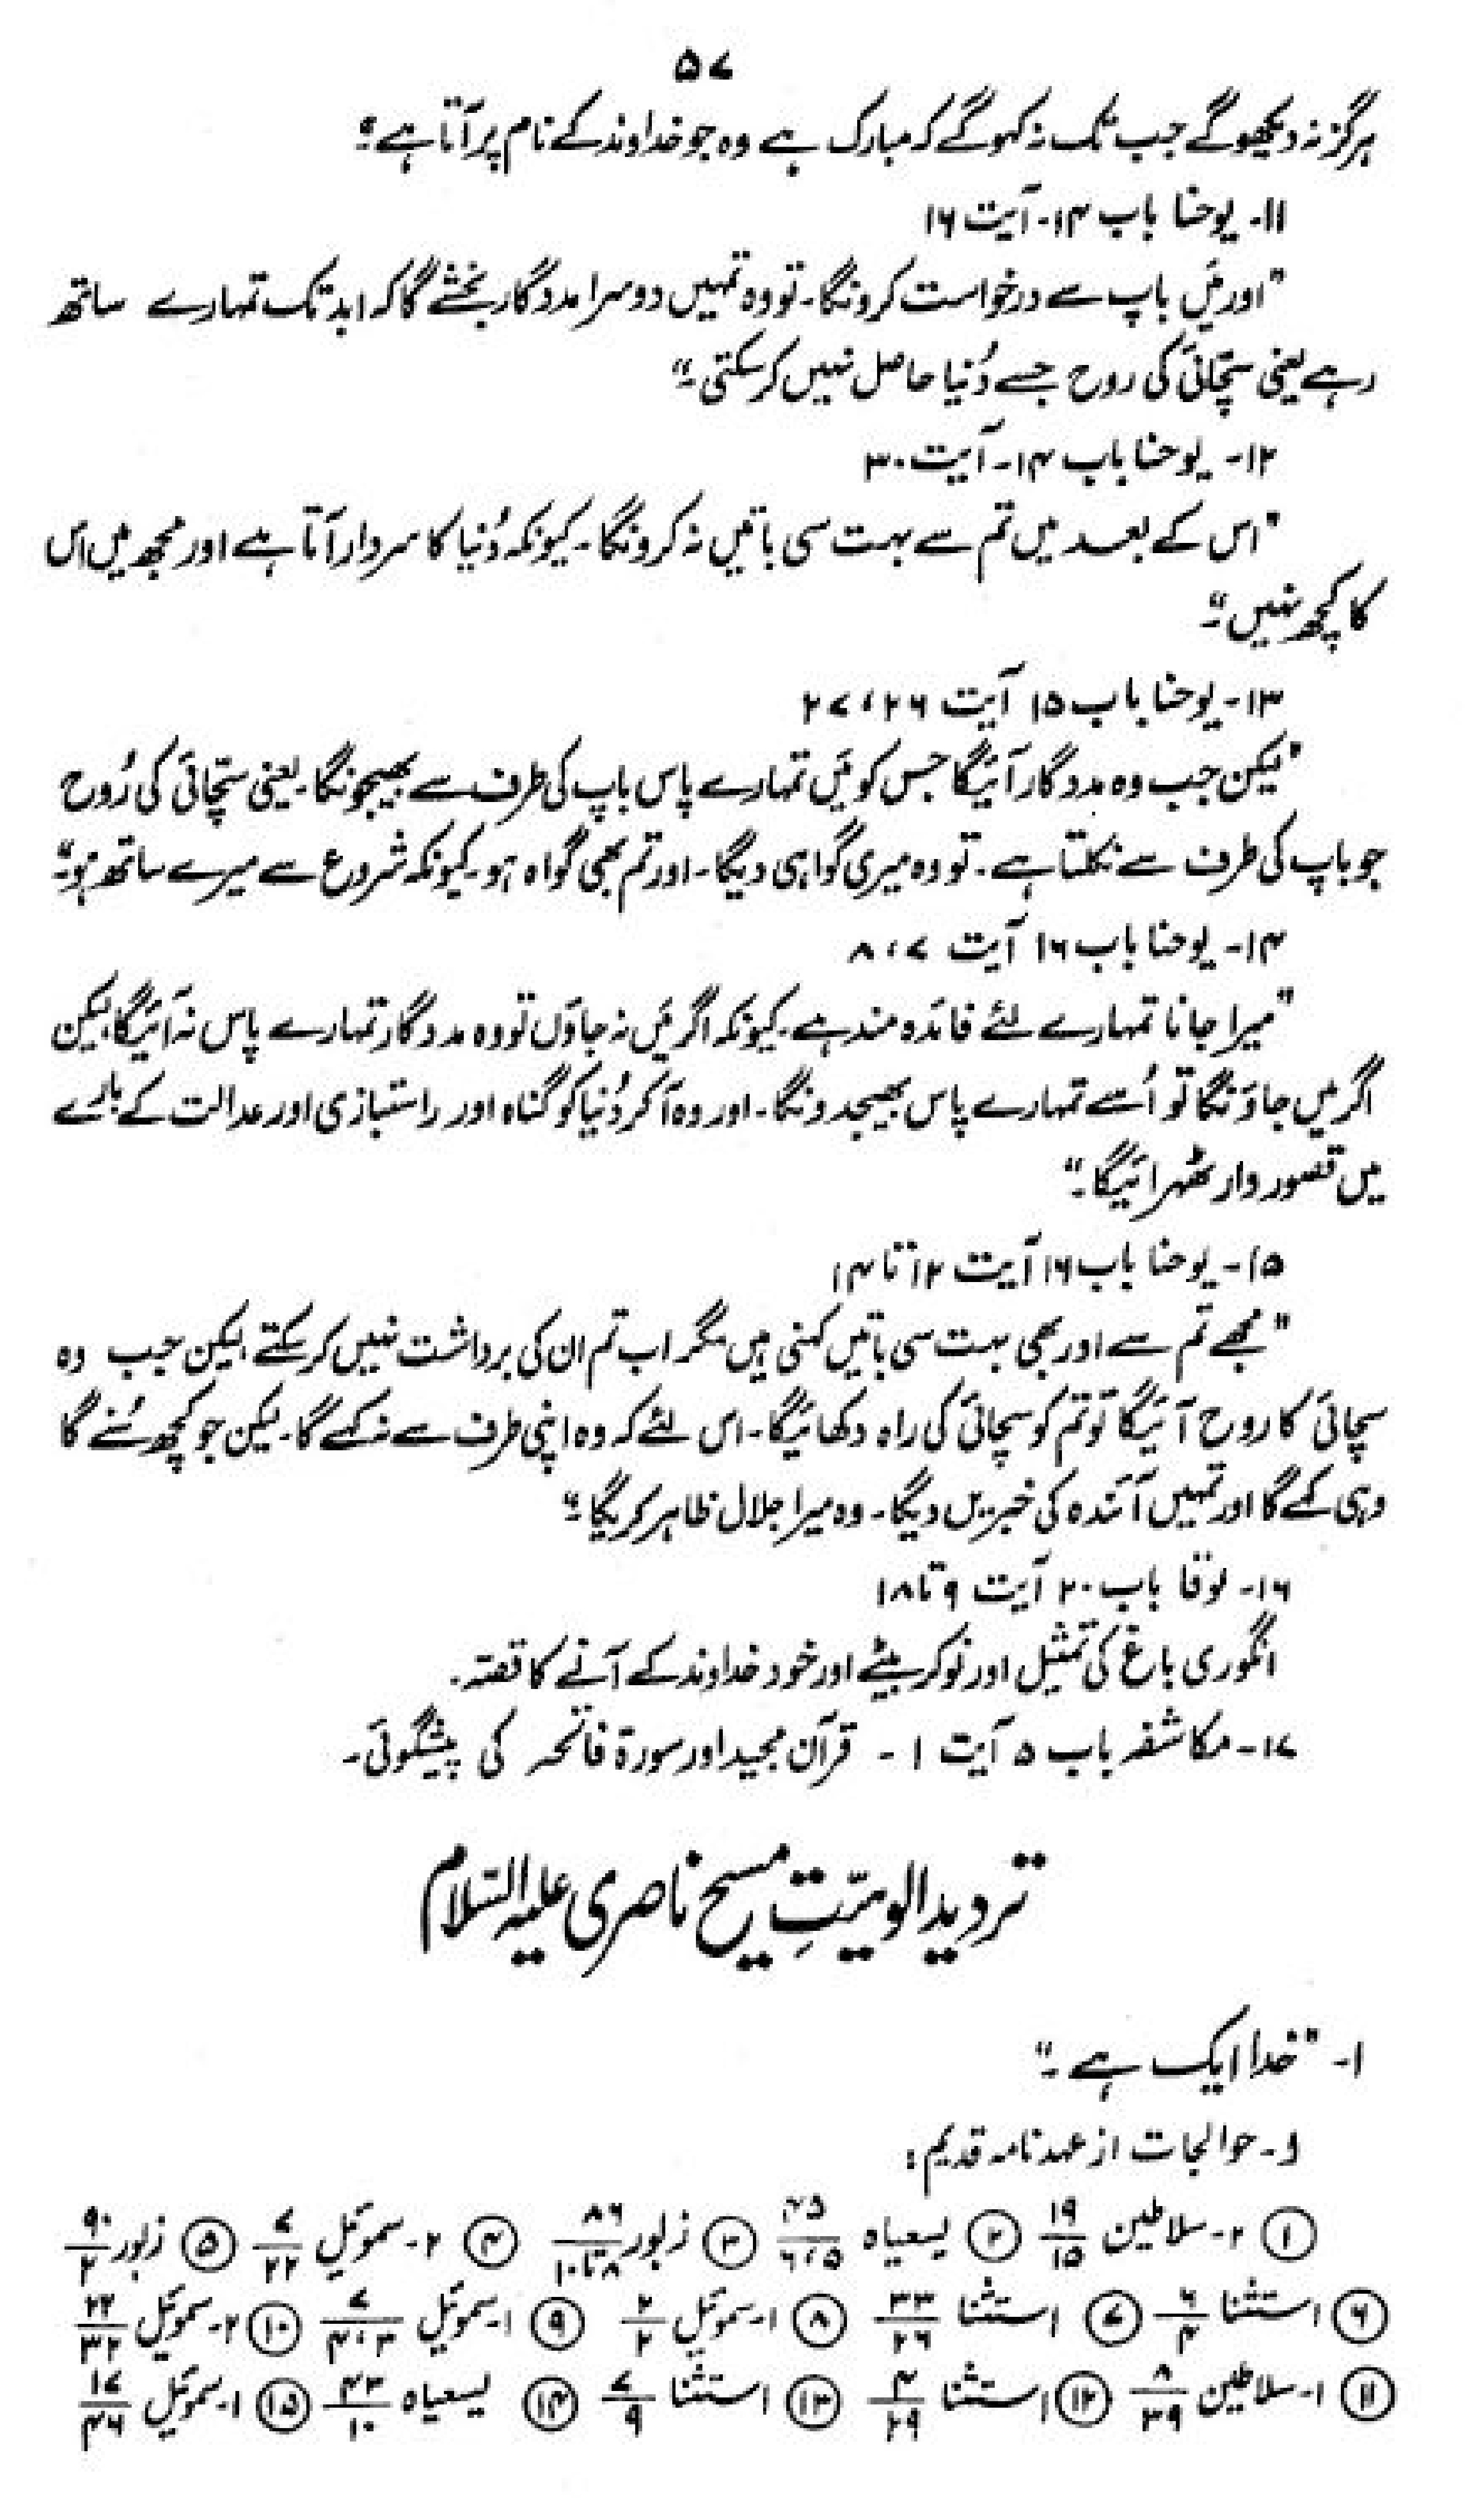 ۵۷
ہرگز نہ دیکھو گے جب تک نہ کہو گے کہ مبارک ہے وہ جو خداوند کے نام پر آتا ہے۔"
۱۱۔ یوحنا باب ۱۴۔ آیت ۱۶
"اور مَیں باپ سے درخواست کرونگا۔ تو وہ تمہیں دوسرا مددگار بخشے گا کہ ابد تک تمہارے ساتھ
رہے یعنی سچّائی کی روح جسے دُنیا حاصل نہیں کر سکتی۔"
۱۲۔ یوحنا باب ۱۴۔ آیت ۳۰
"اس کے بعد میں تم سے بہت سی باتیں نہ کرونگا۔ کیونکہ دُنیا کا سردار آتا ہے اور مجھ میں اس
کا کچھ نہیں۔"
۱۳۔ یوحنا باب ۱۵ آیت ۲۶، ۲۷
"لیکن جب وہ مددگار آئیگا جس کو مَیں تمہارے پاس باپ کی طرف سے بھیجونگا۔ یعنی سچّائی کی رُوح
جو باپ کی طرف سے نکلتا ہے۔ تو وہ میری گواہی دیگا۔ اور تم بھی گواہ ہو۔ کیونکہ شروع سے میرے ساتھ ہو۔"
۱۴۔ یوحنا باب ۱۶ آیت ۷، ۸
"میرا جانا تمہارے لئے فائدہ مند ہے۔ کیونکہ اگر مَیں نہ جاؤں تو وہ مددگار تمہارے پاس نہ آئیگا، لیکن
اگر میں جاؤنگا تو اُسے تمہارے پاس بھیجدونگا۔ اور وہ آ کر دُنیا کو گناہ اور راستبازی اور عدالت کے بارے
میں قصور وار ٹھہرائیگا۔"
۱۵۔ یوحنا باب ۱۶ آیت ۱۲ تا ۱۴
"مجھے تم سے اور بھی بہت سی باتیں کہنی ہیں مگر اب تم ان کی برداشت نہیں کر سکتے، لیکن جب وہ
سچائی کا روح آئیگا تو تم کو سچائی کی راہ دکھائیگا۔ اس لئے کہ وہ اپنی طرف سے نہ کہے گا۔ لیکن جو کچھ سُنے گا
وہی کہے گا اور تمہیں آئندہ کی خبریں دیگا۔ وہ میرا جلال ظاہر کریگا۔"
۱۶۔ لوقا باب ۲۰ آیت ۹ تا ۱۸
انگوری باغ کی تمثیل اور نوکر بیٹے اور خود خداوند کے آنے کا قصّہ۔
۱۷۔ مکاشفہ باب ۵ آیت ۱ ۔ قرآن مجید اور سورۃ فاتحہ کی پیشگوئی۔
تردید الوہیّتِ مسیح ناصری علیہ السّلام
۱۔ "خدا ایک ہے۔"
ا۔ حوالجات از عہد نامہ قدیم:
① ۲۔سلاطین ۱۹/۱۵ ② یسعیاہ ۴۵/۶،۵ ③ زبور ۸۶/۸ تا ۱۰ ④ ۲۔سموئیل ۷/۲۲ ⑤ زبور ۹۰/۲
⑥ استثنا ۶/۴ ⑦ استثنا ۳۳/۲۶ ⑧ ۱۔سموئیل ۲/۲ ⑨ ۱۔سموئیل ۷/۴،۳ ⑩ ۲۔سموئیل ۲۲/۳۲
⑪ ۱۔سلاطین ۸/۳۹ ⑫ استثنا ۴/۳۹ ⑬ استثنا ۷/۹ ⑭ یسعیاہ ۴۳/۱۰ ⑮ ۱۔سموئیل ۱۷/۴۶